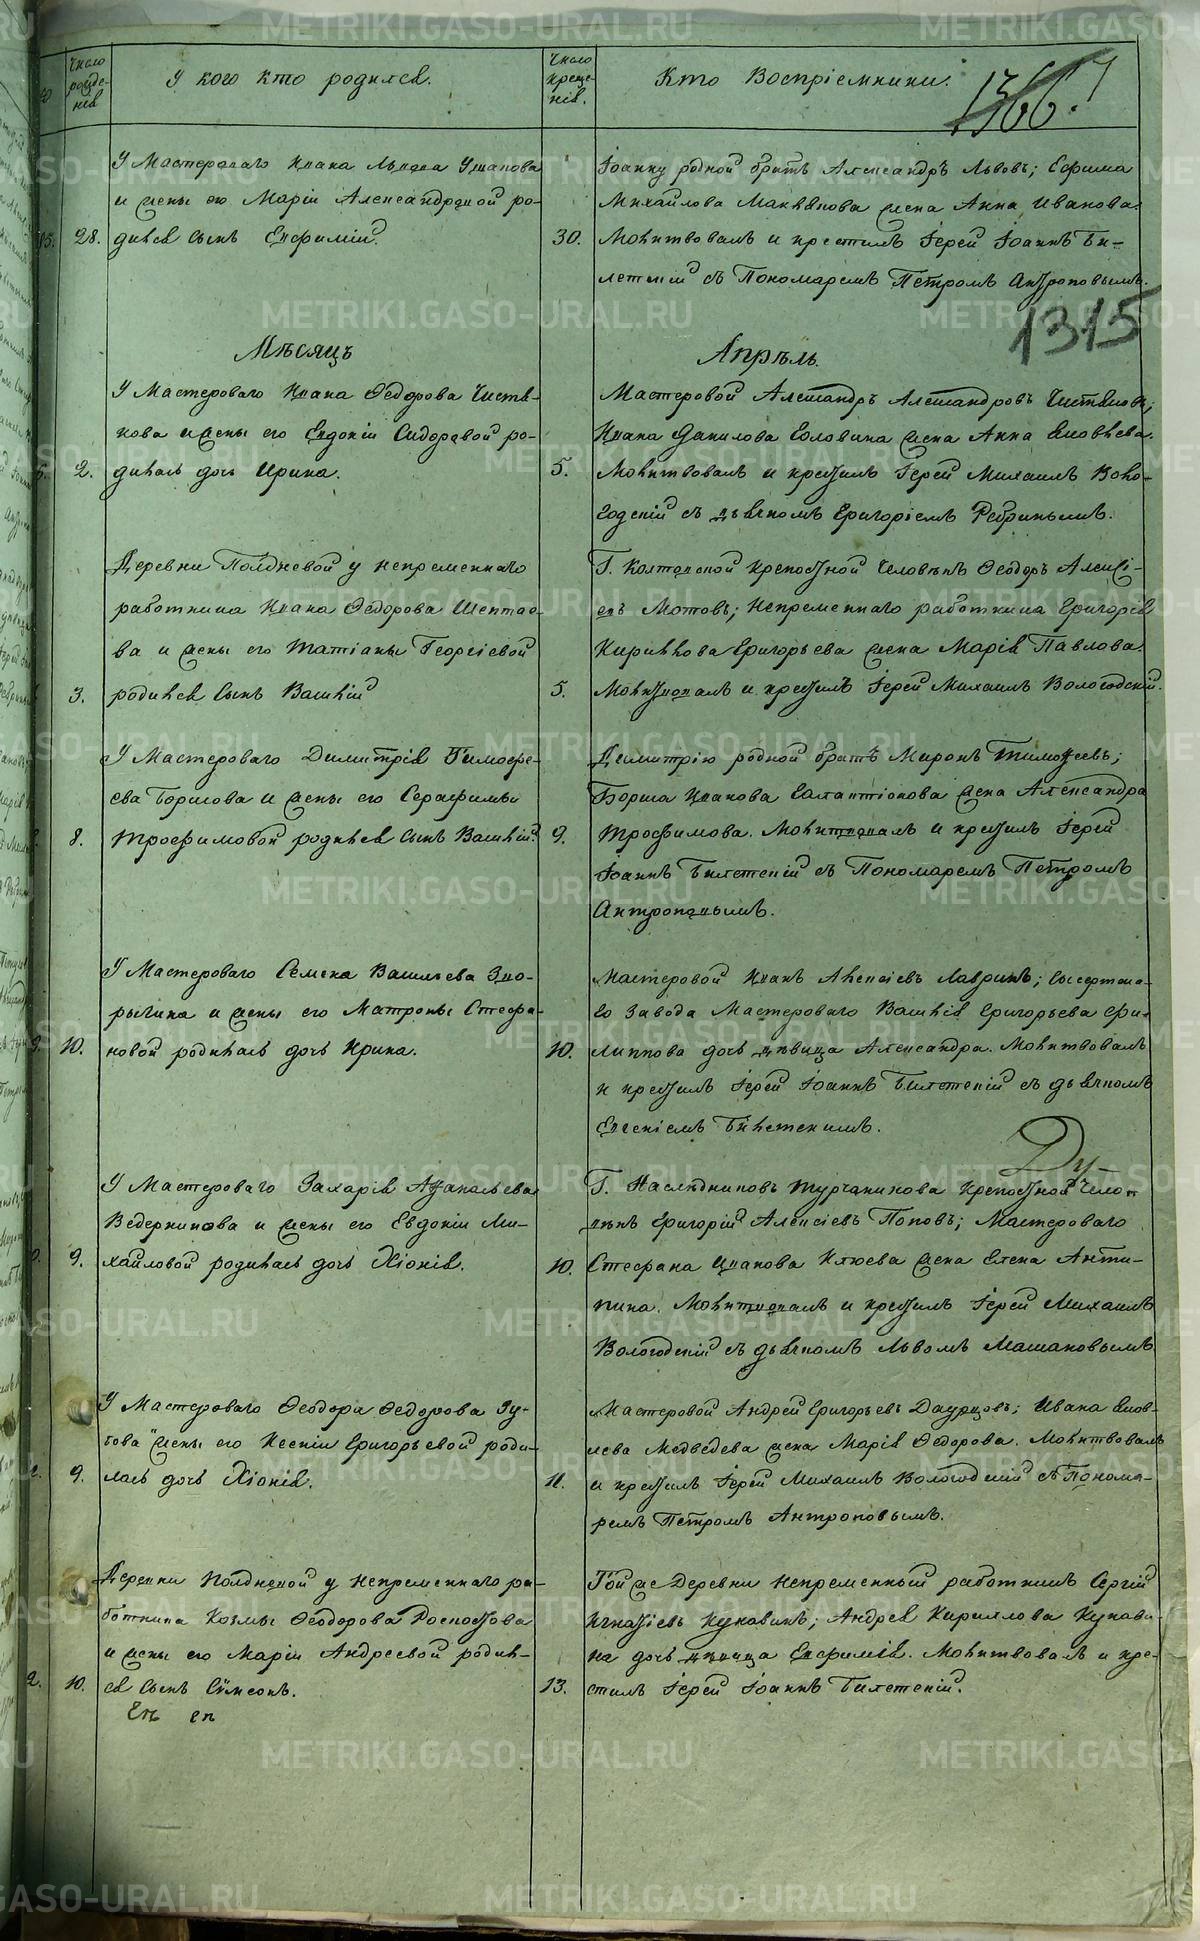 Число рожде-нія
У кого кто родился.
Число креще-нія.
Кто Воспріемники.
1366.
1315
У Мастероваго Ивана Львова Ушакова
и жены его Маріи Александровой ро-
15. 28. дился сынъ Евфимій.
Іоанну родной братъ Александръ Львовъ; Ефима
Михайлова жена Анна Иванова.
30. Молитвовалъ и крестилъ Іерей Іоаннъ Би-
летскій съ Пономаремъ Петромъ Антроповымъ.
Мѣсяцъ Апрѣль.
У Мастероваго Ивана Ѳедорова Чистя-
кова и жены его Евдокіи Сидоровой ро-
2. дилась дочь Ирина.
Мастеровой Александръ Александровъ Чистяковъ;
Ивана Данилова Головина жена Анна Яковлева.
5. Молитвовалъ и крестилъ Іерей Михаилъ Воло-
годскій съ дьячкомъ Григоріемъ Ребринымъ.
Деревни Полдневой у непременнаго
работника Ивана Ѳедорова Шептае-
ва и жены его Татіаны Георгіевой
3. родился сынъ Василій
Г. крепостной человѣкъ Ѳеодоръ Алексі-
евъ Мотовъ; непременнаго работника Григорія
Кирилова Григорьева жена Марія Павлова.
5. Молитвовалъ и крестилъ Іерей Михаилъ Вологодскій.
У Мастероваго Димитрія Тимофе-
ева Борисова и жены его Серафимы
8. Трофимовой родился сынъ Василій.
Димитрію родной братъ Миронъ Тимофеевъ;
Бориса Иванова Галактіонова жена Александра
9. Трофимова. Молитвовалъ и крестилъ Іерей
Іоаннъ Билетскій съ Пономаремъ Петромъ
Антроповымъ.
У Мастероваго Семена Васильева Зво-
рыгина и жены его Матроны Стефа-
10. новой родилась дочь Ирина.
Мастеровой Иванъ Алексіевъ Лавринъ; Сысертска-
го завода Мастероваго Василія Григорьева Фи-
10. липпова дочь дѣвица Александра. Молитвовалъ
и крестилъ Іерей Іоаннъ Билетскій съ дьячкомъ
Евгеніемъ Билетскимъ.
У Мастероваго Захарія Аѳанасьева
Ведерникова и жены его Евдокіи Ми-
9. хайловой родилась дочь Хіонія.
Г. Наслѣдниковъ Турчанинова крепостной чело-
вѣкъ Григорій Алексіевъ Поповъ; Мастероваго
10. Стефана Иванова Клюева жена Елена Анти-
пина. Молитвовалъ и крестилъ Іерей Михаилъ
Вологодскій съ дьячкомъ Львомъ Машановымъ.
У Мастероваго Ѳеодора Ѳедорова Зу-
това и жены его Ксеніи Григорьевой роди-
9. лась дочь Хіонія.
Мастеровой Андрей Григорьевъ Даурцовъ; Ивана Яков-
лева Медведева жена Марія Ѳедорова. Молитвовалъ
11. и крестилъ Іерей Михаилъ Вологодскій съ Понома-
ремъ Петромъ Антроповымъ.
Деревни Полдневой у непременнаго ра-
ботника Козмы Ѳеодорова Роспостова
и жены его Маріи Андреевой родил-
10. ся сынъ Сімеонъ.
Той же Деревни непременный работникъ Сергій
Игнатіевъ Кукавинъ; Андрея Кириллова Кукави-
на дочь дѣвица Евфимія. Молитвовалъ и кре-
13. стилъ Іерей Іоаннъ Билетскій.
METRIKI.GASO-URAL.RU